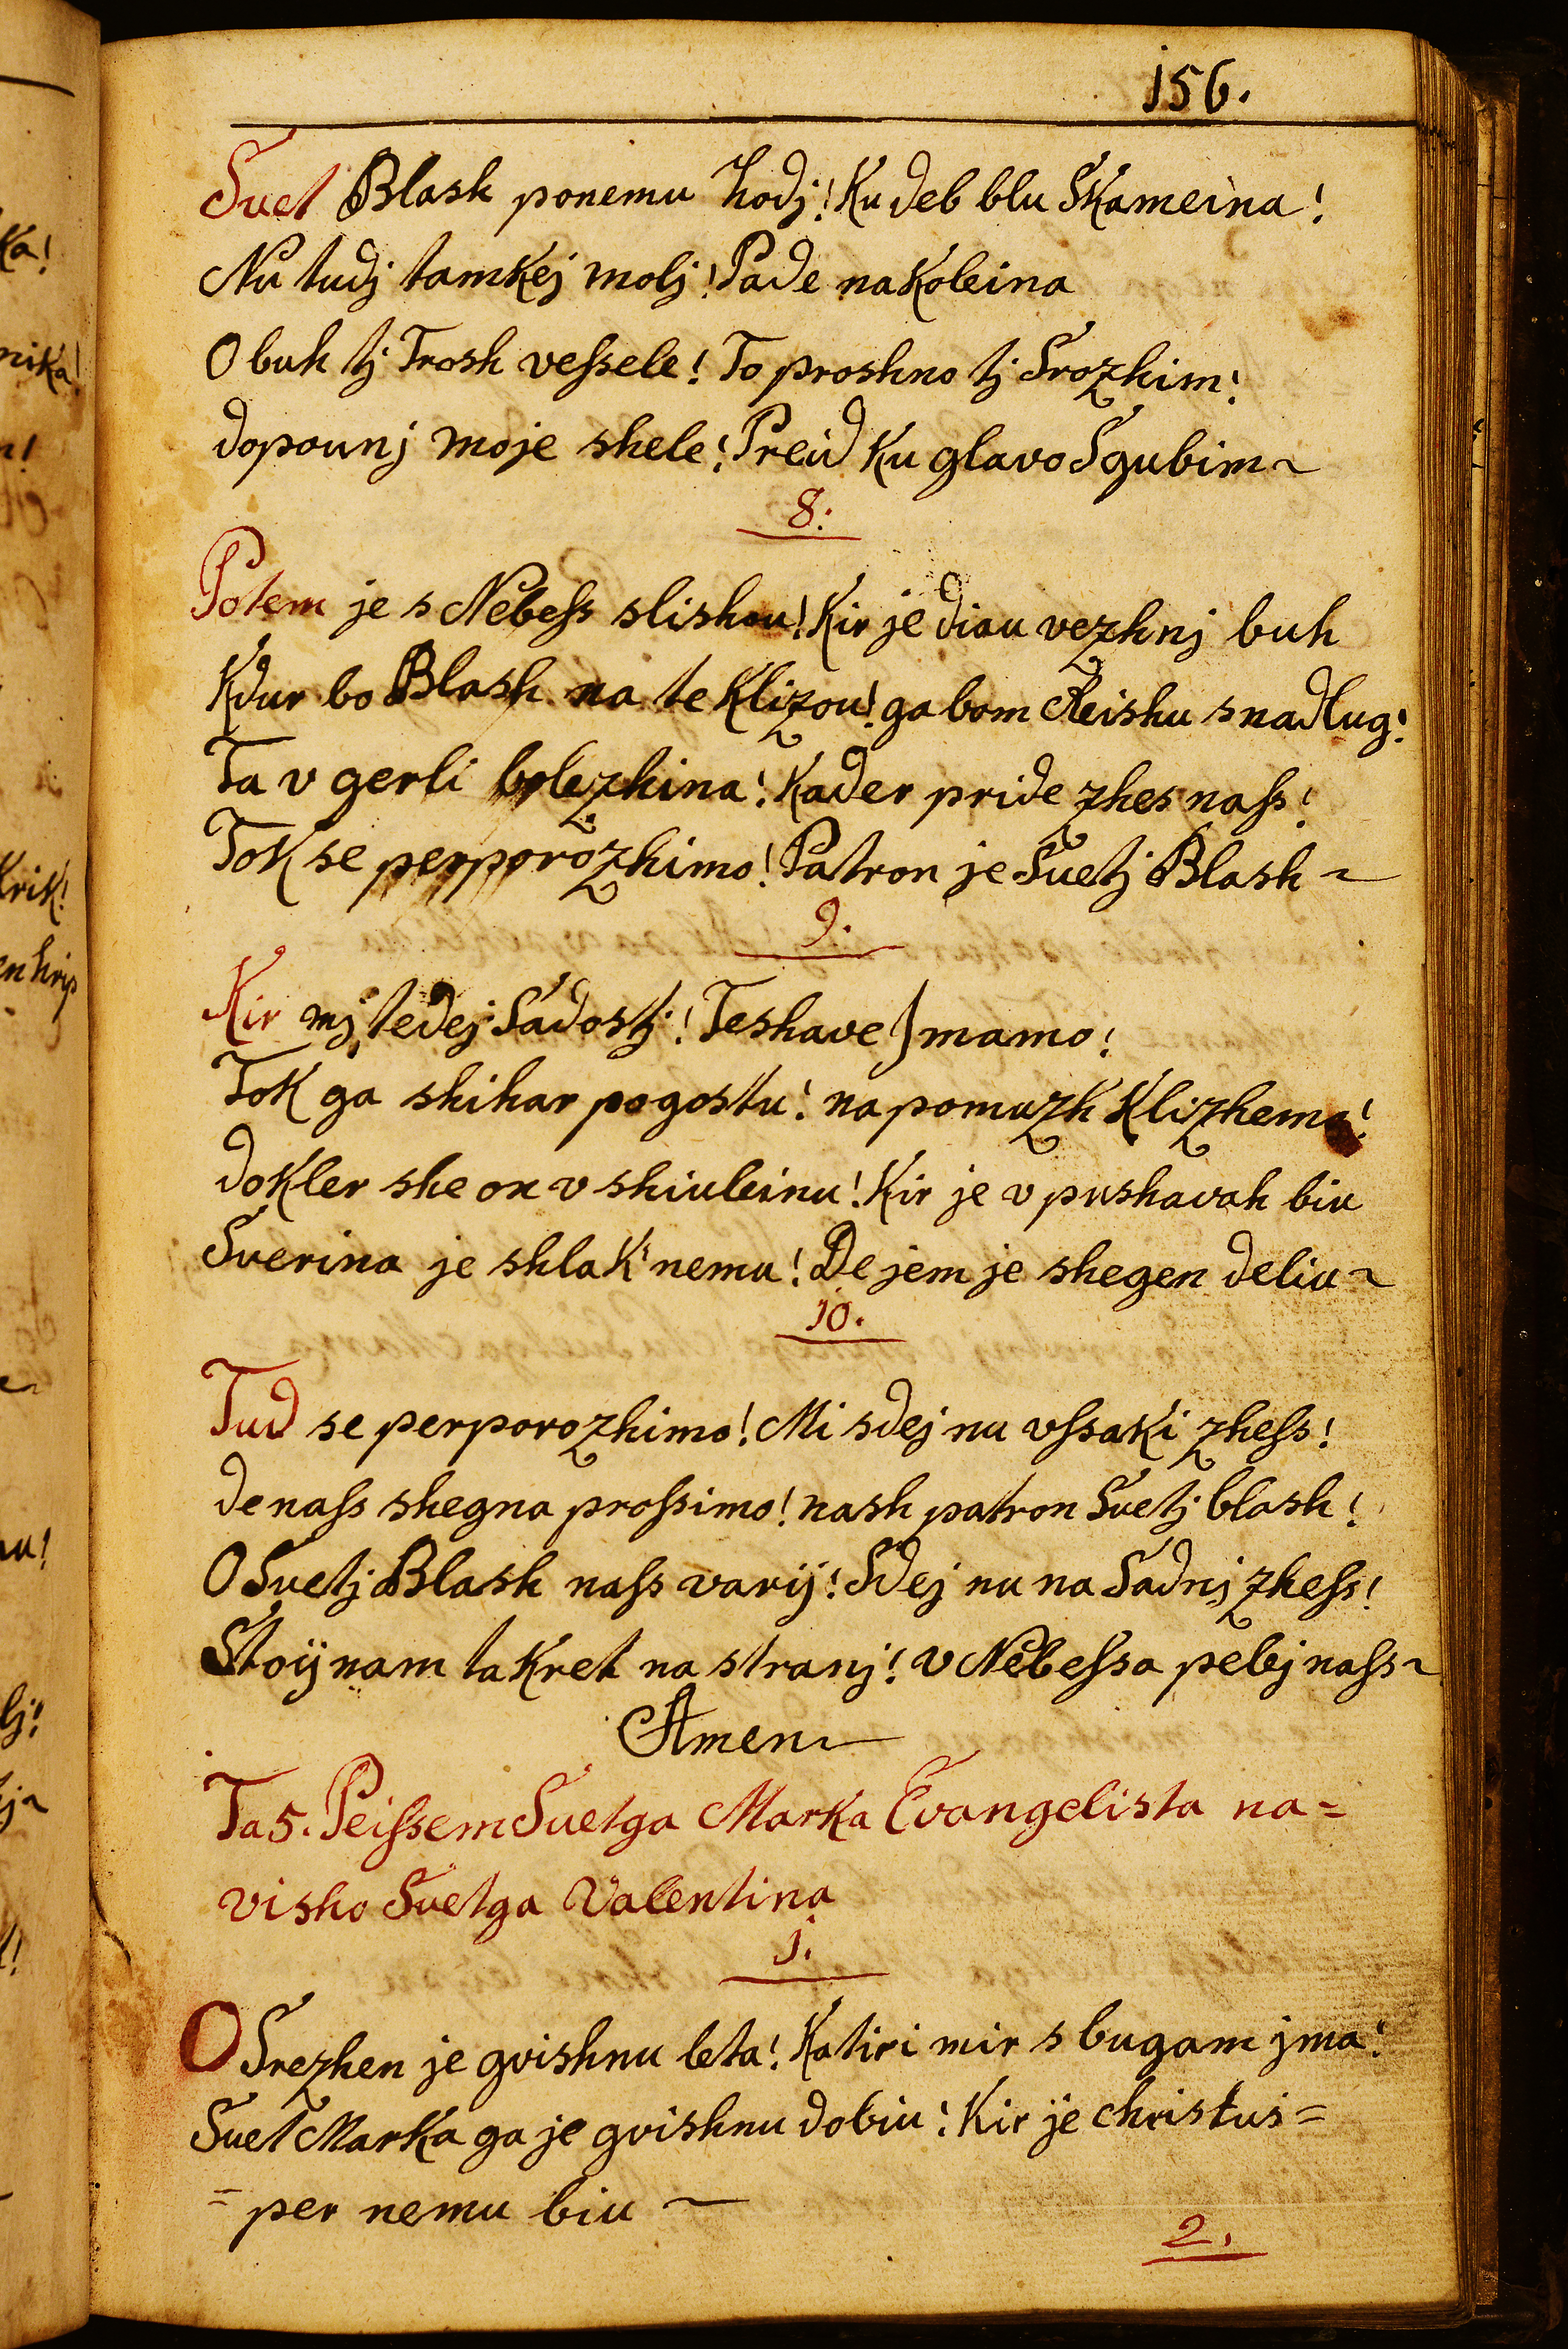 156.
Svet Blash ponemu hodj! Ku deb blu Skameina!
Nu tudj tamkej molj! Pade na koleina
O buh tj Trosh veſsele! To proshno tj Srozhim!
dopounj moje shele! Preid ku glavo Sgubim~
8.
Potem je s Nebeſs slishou! Kir je diau vezhnj buh
Kdur bo Blash na te Klizou! ga bom Reishu snadlug!
Ta v gerli bolezhina! Kader pride zhes naſs!
Tok se perporozhimo! Patron je Svetj Blash~
9.
Kir mj tedej Sadostj! Teshave) mamo!
Tok ga shihar pogostu! na pomuzh Klizhemo!
dokler she on v shiuleinu! Kir je v pushavah biu
Sverina je shla k'nemu! De jem je shegen deliu~
10.
Tud se perporozhimo! Mi sdej nu vſsaki zheſs!
de naſs shegna proſsimo! nash patron Svetj blash!
O Svetj Blash naſs varij! Sdej nu na Sadnj zheſs!
Stoij nam takret na stranj! v Nebeſsa pelej naſs~
Amen
Ta 5. Peiſsem Svetga Marka Evangelista na=
visho Svetga Valentina
1.
O Srezhen je gvishnu leta! Katiri mir s bugam jma!
Svet Marka ga je gvishnu dobiu! Kir je christus=
=per nemu biu~
2.